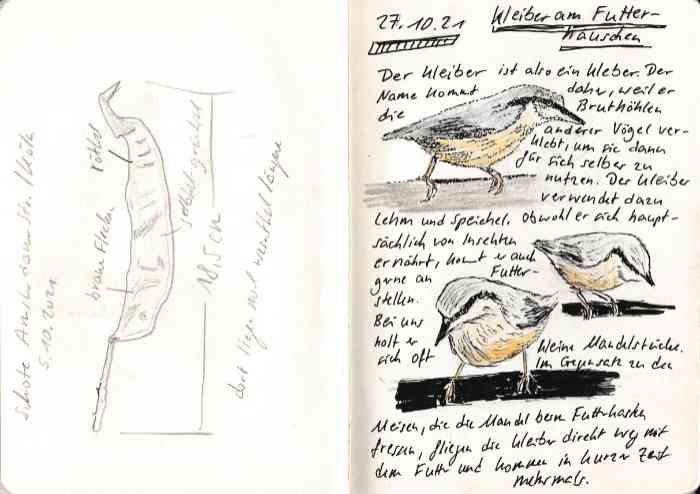 Schote
5.10.2021
braune Flecken
Rötel
18,5 cm
dort liegen viel
27.10.21
Kleiber am Futter-
häuschen
Der Kleiber ist also ein Kleber. Der
Name kommt daher, weil er
die Bruthöhlen
anderer Vögel ver-
klebt, um sie dann
für sich selber zu
nutzen. Der Kleiber
verwendet dazu
Lehm und Speichel. Obwohl er sich haupt-
sächlich von Insekten
ernährt, kommt er auch
gerne an Futter-
stellen.
Bei uns
holt er
sich oft
kleine Mandelstücke.
Im Gegensatz zu den
Meisen, die die Mandel beim Futterkasten
fressen, fliegen die Kleiber direkt weg mit
dem Futter und kommen in kurzer Zeit
mehrmals.